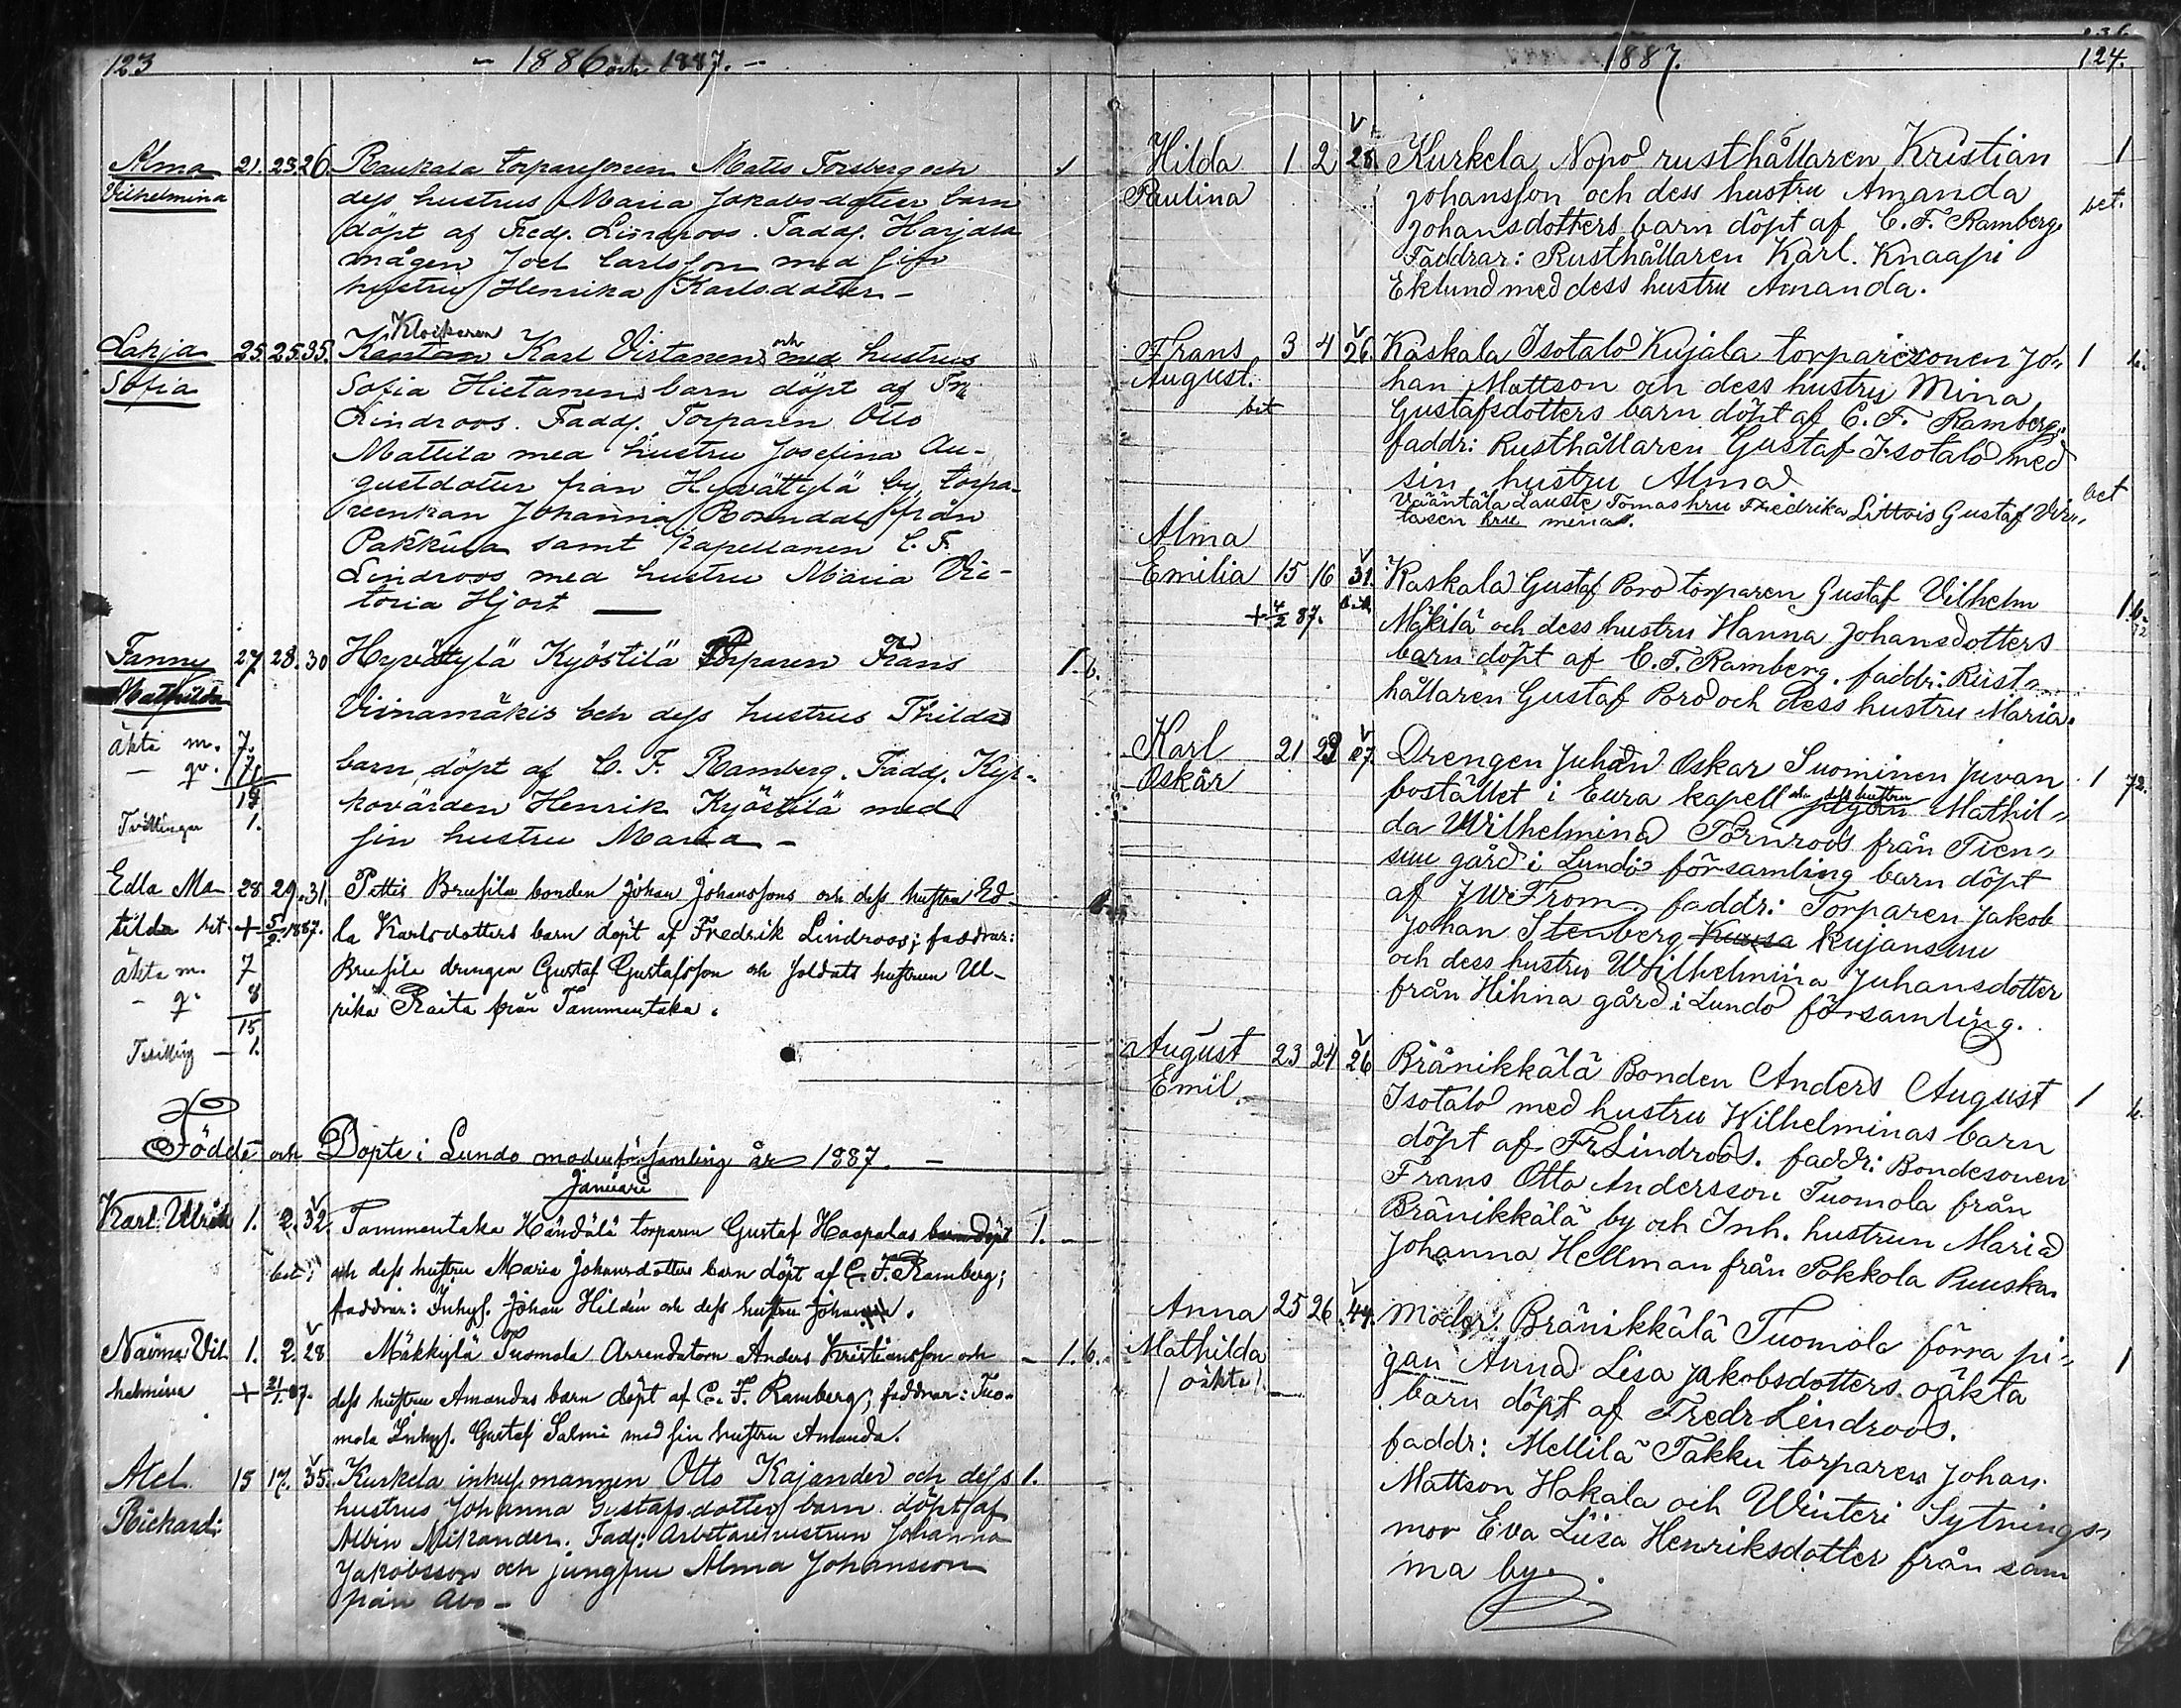 123 - 1886 och 1887. -
Alma 21. 25. 26. Raukala torparesonen Matts Forsberg och 1
Vilhelmina dess hustrus Maria Jakobsdotter barn
döpt af Fredr. Lindroos. Fadd. Harjala
mågen Joel Carlsson med sin
hustru Henrika Karlsdotter -
Klockaren
Lahja 25. 25. 35. Karl Virtanens och med hustrus
Sofia Sofia Hietanens barn döpt af Fr.
Lindroos. Fadd. Torparen Otto
Mattila med hustru Josefina Au-
gustdotter från Hyvättylä by, torpa-
reenkan Johanna Rosendal från
Pakkula samt kapellanen C. F.
Lindroos med hustru Maria Vic-
toria Hjort
Fanny 27. 28. 30 Hyvätylä Kyöstilä Torparen Frans 1. b.
Mathilda Viinamäkis och dess hustrus Thildas
äkta m. 7.
— qv.
barn döpt af C. F. Ramberg. Fadd. Kyr-
kovärden Henrik Kyöstilä med
Tvillingar 1.
sin hustru Maria -
Edla Ma- 28 29. 31. Pettis Brusila bonden Johan Johanssons och dess hustru Ed-
tilda bet + 5/2 1887. la Karlsdotters barn döpt af Fredrik Lindroos; faddrar:
äkta m. 7 Brusila drengen Gustaf Gustafsson och soldats hustrun Ul-
- q. 8 rika Raita från Tammentaka.
15
Tvilling — 1.
Födde och Döpte i Lundo moderförsamling år 1887. —
Januari
Karl Ulrik 1. 2. 32. Tammentaka Händälä torparen Gustaf Haapalas barn döpt 1. -
bet. och dess hustru Maria Johansdotters barn döpt af C. F. Ramberg;
faddrar: Inhys. Johan Hildén och dess hustru Johanna.
Naëma Vil- 1. 2. 28 Mäkkylä Tuomola Arrendatorn Anders Kristiansson och - 1. b.
helmina + 21/1 87. dess hustru Amandas barn döpt af C. F. Ramberg; faddrar: Tuo-
mola Inhys. Gustaf Salmi med sin hustru Amanda.
Axel 15 17. 35. Kurkela inhysmannen Otto Kajander och dess 1.
Rickard: hustrus Johanna Gustafsdotter barn döpt af
Albin Nikander. Fadd: Arbetarehustrun Johanna
Jakobsson och jungfru Alma Johansson
från Åbo -
1887. 124.
Hilda 1 2 28. Kurkela Nopo rusthållaren Kristian 1
Paulina Johansson och dess hustru Amanda bet.
Johansdotters barn döpt af C. F. Ramberg.
Faddrar: Rusthållaren Karl. Knaapi
Eklund med dess hustru Amanda.
Frans 3 4 26 Kaskala Isotalo Kujala torparesonen Jo- 1 b.
August. han Mattson och dess hustru Mina
bet Gustafsdotters barn döpt af C. F. Ramberg.
faddr: Rusthållaren Gustaf Isotalo med
sin hustru Alma bet
Vääntälä Lauste Tomas hru Fredrika Littois Gustaf Vir-
tasen hru mina.
Alma
Emilia 15 16 31. Kaskala Gustaf Poro torparen Gustaf Vilhelm 1. b.
+ 4/2 87. Mäkilä och dess hustru Hanna Johansdotters
barn döpt af C. F. Ramberg. faddr: Rust-
hållaren Gustaf Poro och dess hustru Maria.
Karl 21 23 27. Drengen Juhan Oskar Suominen Juvan 1 72.
Oskar bostället i Eura kapell och dess hustru Mathil-
da Wilhelmina Törnroos från Tien-
suu gård i Lundo församling barn döpt
af J W From. faddr: Torparen Jakob
Johan Stenberg Kujansuu
och dess hustru Wilhelmina Juhansdotter
från Hihna gård i Lundo församling.
August 23 24 26 Bränikkälä Bonden Anders August 1 b.
Emil. Isotalo med hustru Wilhelminas barn
döpt af Fr Lindroos. faddr: Bondesonen
Frans Otto Andersson Tuomola från
Bränikkälä by och Inh. hustrun Maria
Johanna Hellman från Pokkola Puuska.
Anna 25 26 44. Moder. Bränikkälä Tuomola förra pi-
Mathilda gan Anna Lisa Jakobsdotters oäkta 1
/ oäkta / barn döpt af Fredr Lindroos.
faddr: Mellilä Takku torparen Johan
Mattson Hakala och Winteri Sytnings-
mor Eva Liisa Henriksdotter från sam
ma by.